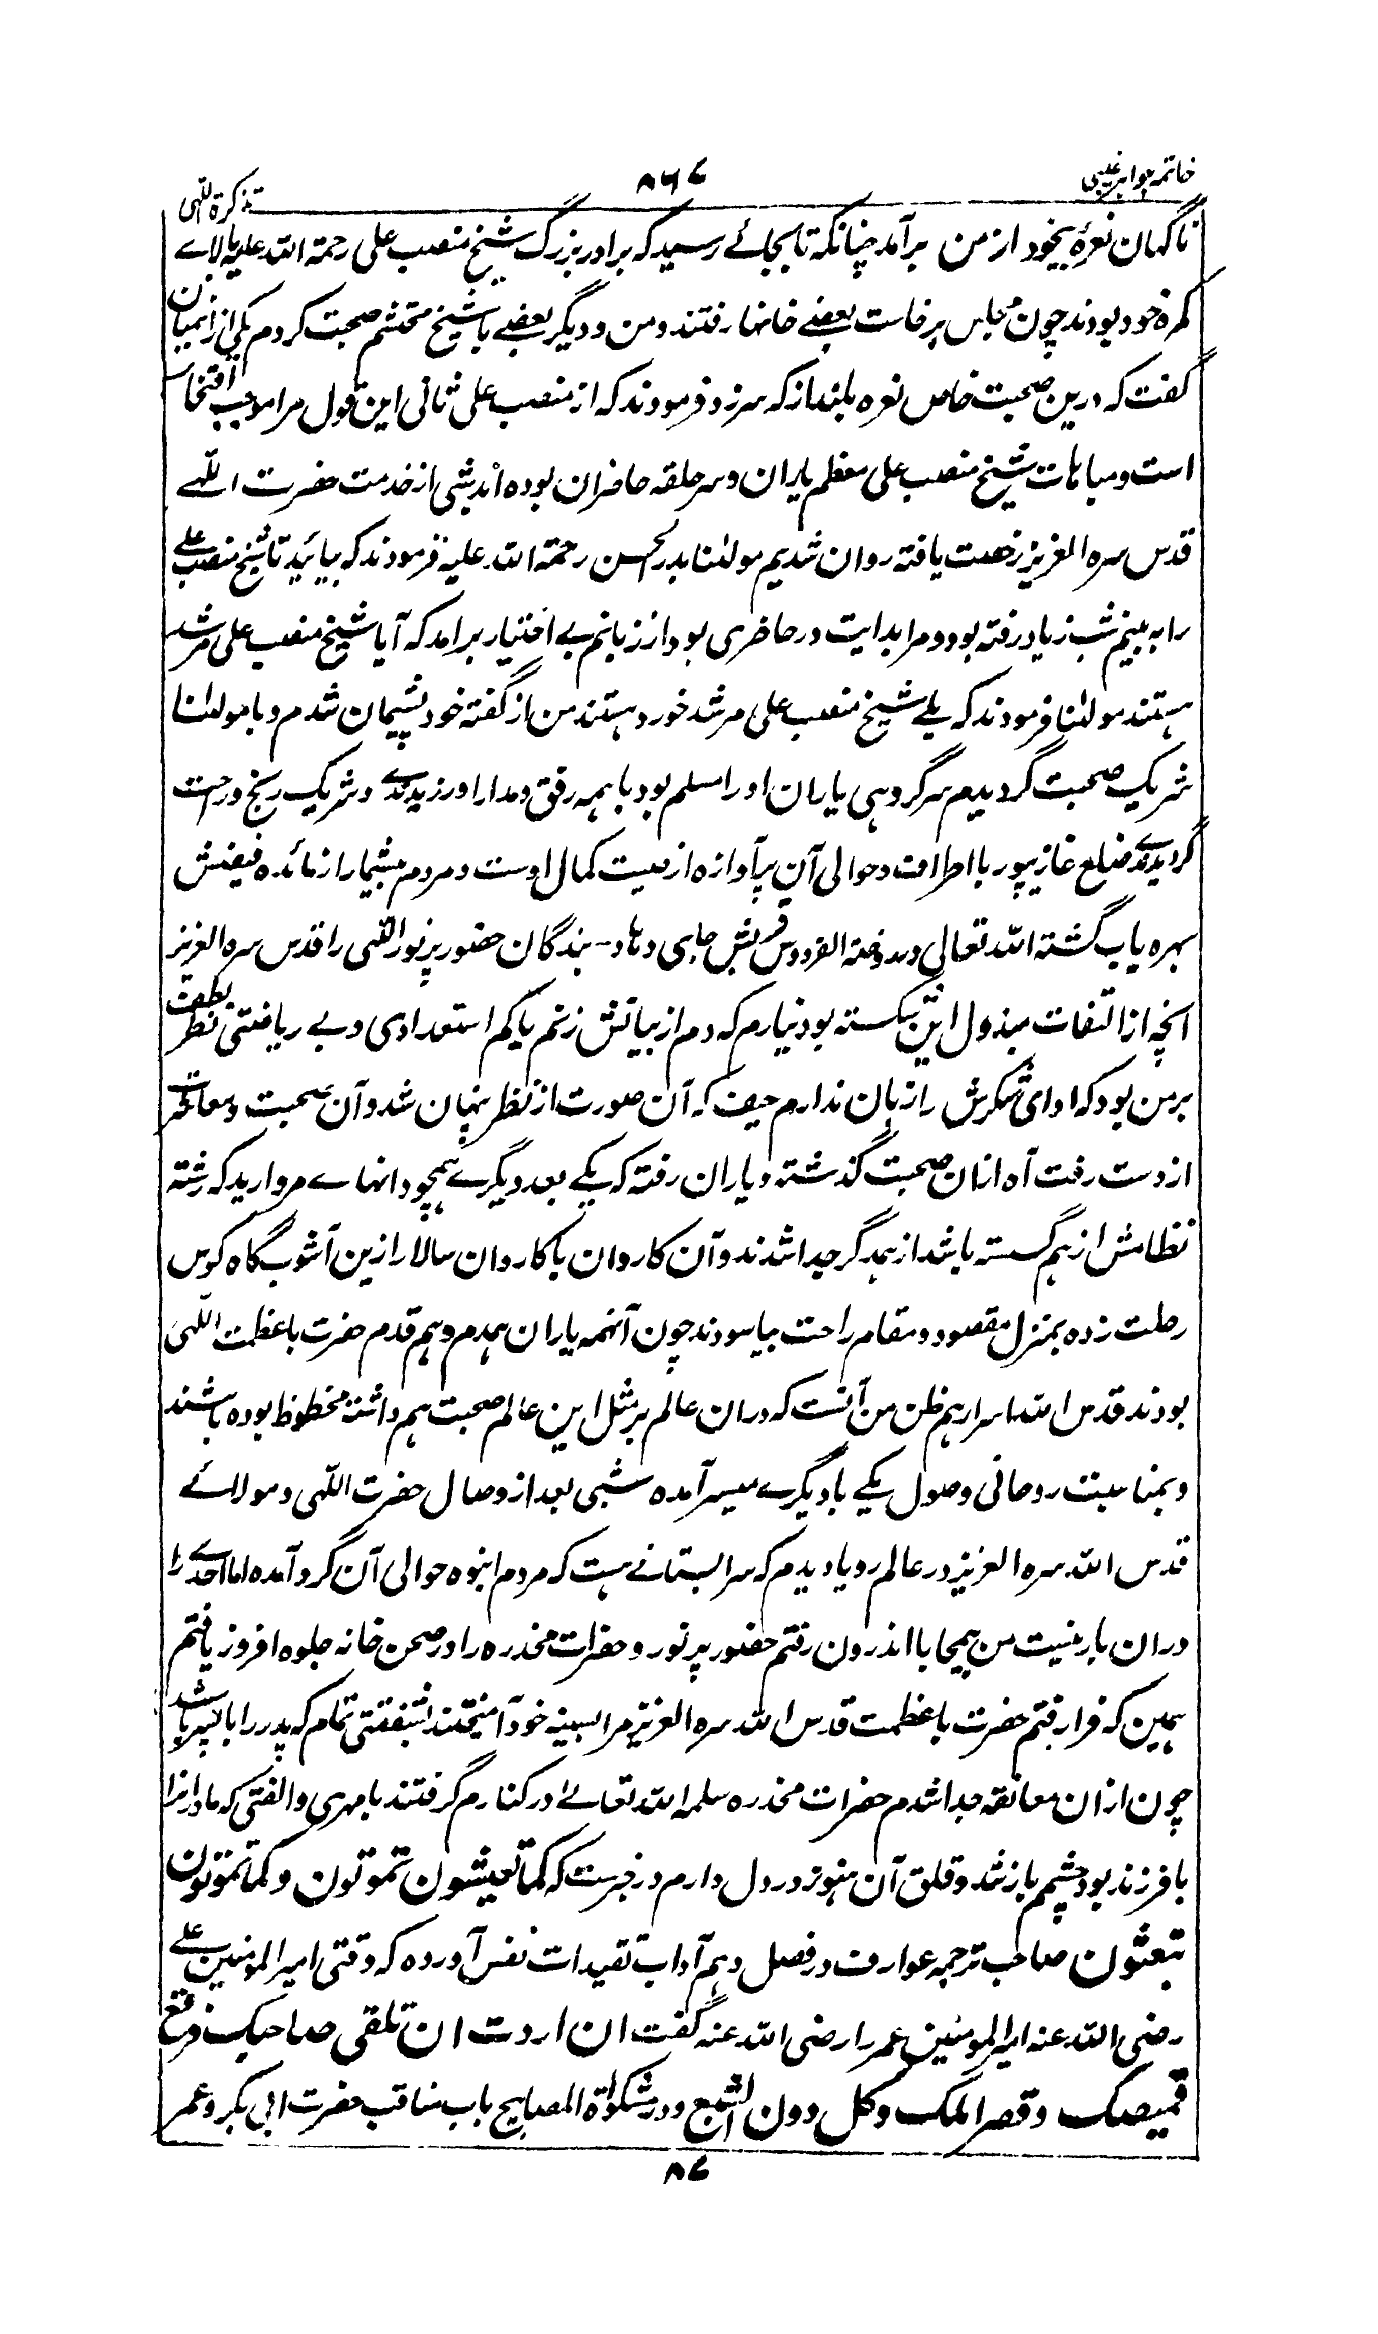 خاتمه جواہر غیبی
۸۶۷
تذکرۃ اللّٰہی
ناگهان نعرهٔ بیخود از من برآمد چنانکه تا بجائے رسید که برادر بزرگ شیخ منصب علی رحمة اللہ علیہ بالاے
کمرهٔ خود بودند چون مجلس برخاست بعضے خانها رفتند و من و دیگر بعضے با شیخ محتشم صحبت کردم یکی از انمیان
گفت که درین صحبت خاص نعره بلند از که سر زد فرمودند که از منصب علی ثانی این قول مرا موجب افتخار
است و مباهات شیخ منصب علی معظم یاران و سر حلقه حاضران بوده اند شبی از خدمت حضرت اللّٰہے
قدس سره العزیز رخصت یافته روان شدیم مولٰنا بدر الحسن رحمة اللہ علیہ فرمودند که بیائید تا شیخ منصب علی
را به بینم شب زیاد رفته بود و مرا بدایت در حاضری بود از زبانم بے اختیار برامد که آیا شیخ منصب علی مرشد
ہستند مولٰنا فرمودند که بلے شیخ منصب علی مرشد خورد ہستند من از گفته خود پشیمان شدم و با مولٰنا
شریک صحبت گردیدم سرگردہی یاران او را مسلم بود با ہمه رفق و مدارا ورزیدندے و شریک رنج و راحت
گردیدندے ضلع غازیپور با اطراف و حوالی آن پر آوازه از صیت کمال اوست و مردم بیشمار از مائده فیضش
بهره یاب گشته اللہ تعالی در روضة الفردوس قربش جاہی دہاد۔ بندگان حضور پرنور اللّٰہی را قدس سره العزیز
آنچه از التفات مبذول این شکسته بود نیارم که دم از بیانش زنم با کم استعدادی و بے ریاضتی نظر بطف
بر من بود که ادای شکرش را زبان ندارم حیف که آن صورت از نظر پنهان شد و آن صحبت و معاشرت
از دست رفت آه ازان صحبت گذشته و یاران رفته که یکے بعد دیگرے ہمچو دانهاے مروارید که رشته
نظامش از ہم گسسته باشد از ہمدگر جدا شدند و آن کاروان با کاروان سالار ازین آشوب گاه کوس
رحلت زده بمنزل مقصود و مقام راحت بیاسودند چون آنهمه یاران ہمدم و ہم قدم حضرت باعظمت اللّٰہی
بودند قدس اللہ اسرارہم ظن من آنست که دران عالم بر مثل این عالم صحبت ہم داشته محظوظ بوده باشند
و بمناسبت روحانی وصول یکے با دیگرے میسر آمده شبی بعد از وصال حضرت اللّٰہی و مولائے
قدس اللہ سره العزیز در عالم رویا دیدم که سرابستانے ہست که مردم انبوه حوالی آن گرد آمده اما احدے را
دران بار نیست من بیمحابا اندرون رفتم حضور پرنور و حضرات مخدره را در صحن خانه جلوه افروز یافتم
ہمین که فرا رفتم حضرت باعظمت قدس اللہ سره العزیز مرا بسینه خود آمیختند بشفقتی تمام که پدر را با پسر باشد
چون ازان معانقه جدا شدم حضرات مخدره سلمہا اللہ تعالےٰ در کنارم گرفتند با مہری و الفتی که مادرانرا
با فرزند بود چشمم باز شد و قلق آن ہنوز در دل دارم در خبرست که کما تعیشون تموتون و کما تموتون
تبعثون صاحب ترجمه عوارف در فصل دہم آداب تقیدات نفس آورده که وقتی امیر المومنین علی
رضی اللہ عنه امیر المومنین عمر را رضی اللہ عنه گفت ان اردت ان تلقی صاحبک فرقع
قمیصک وقصر املک وکل دون الشبع و در مشکوٰة المصابیح باب مناقب حضرت ابی بکر و عمر
۸۷